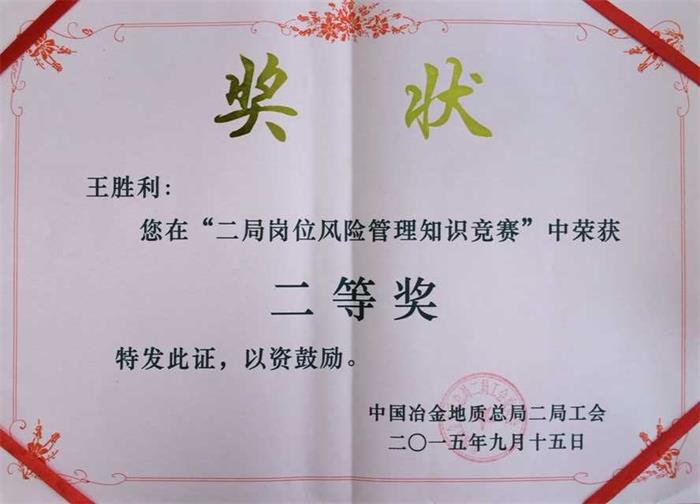 奖状
王胜利：
您在“二局岗位风险管理知识竞赛”中荣获
二等奖
特发此证，以资鼓励。
中国冶金地质总局二局工会
二〇一五年九月十五日